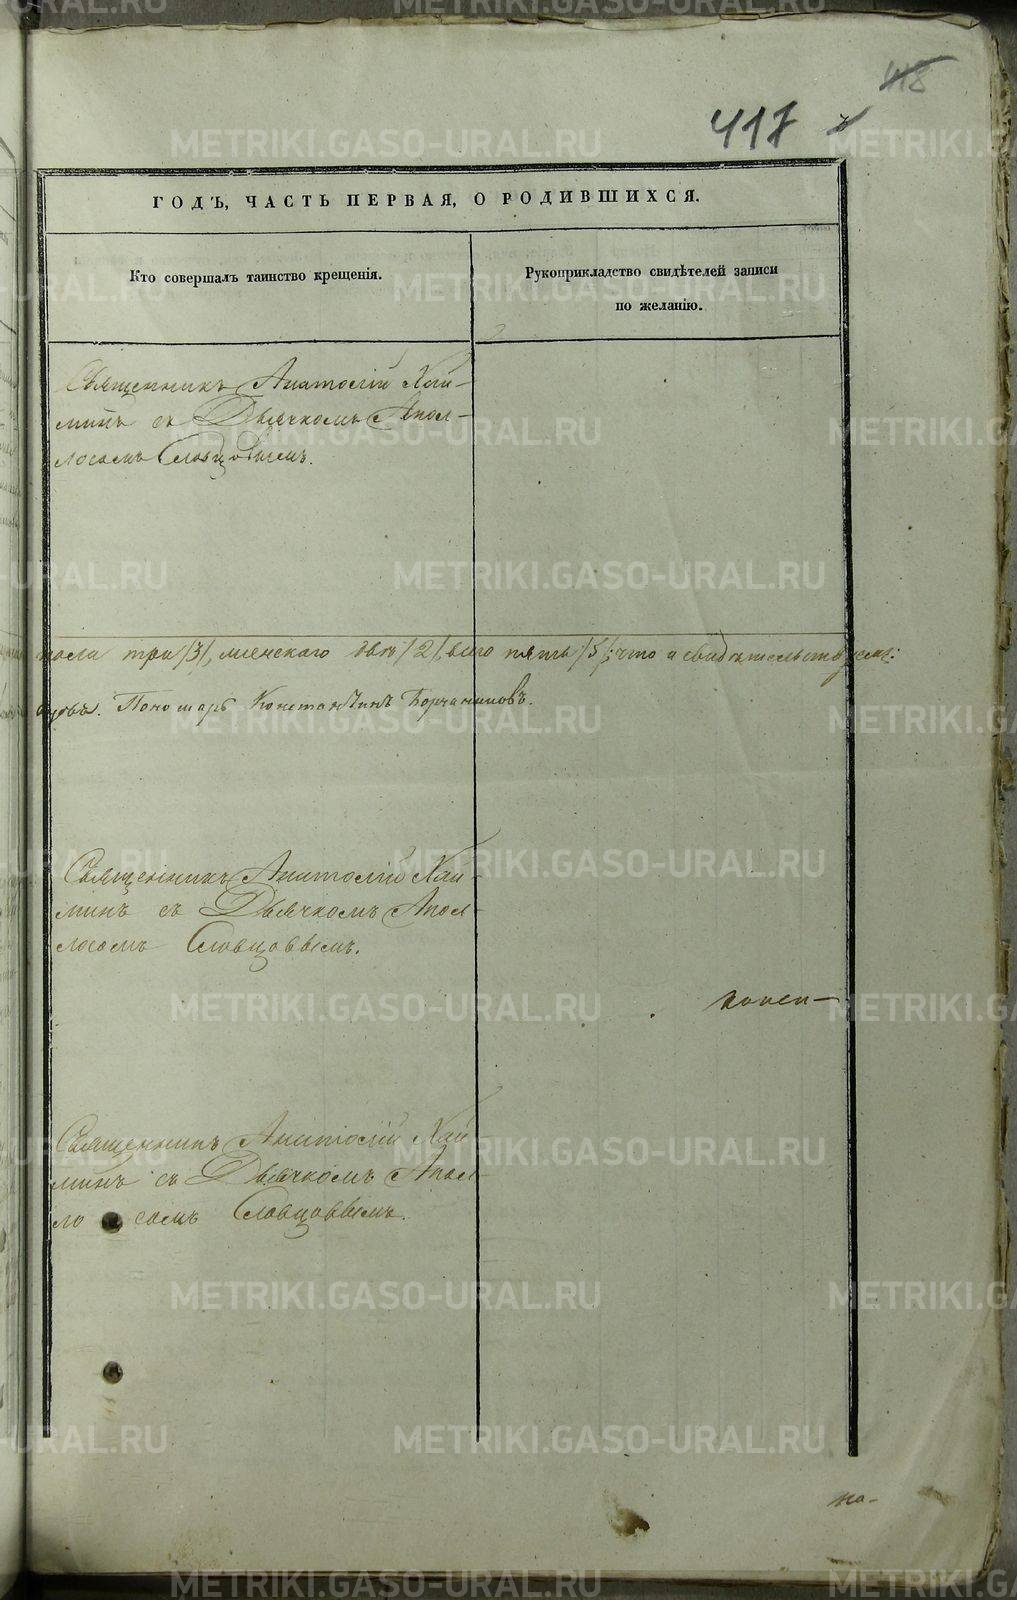 418
417
ГОДЪ, ЧАСТЬ ПЕРВАЯ, О РОДИВШИХСЯ.
Кто совершалъ таинство крещенія.
Рукоприкладство свидѣтелей записи
по желанію.
Священникъ Анатолій Хай-
минъ съ Дьячкомъ Апол-
лосомъ Словцовымъ.
пола три /3/, женскаго два /2/, всего пять /5/; что и свидѣтельствуемъ:
Пономарь Константинъ Корчаниновъ.
Священникъ Анатолій Хай-
минъ съ Дьячкомъ Апол-
лосомъ Словцовымъ.
Священникъ Анатолій Хай
минъ съ Дьячкомъ Апол-
ло сомъ Словцовымъ.
на-
METRIKI.GASO-URAL.RU